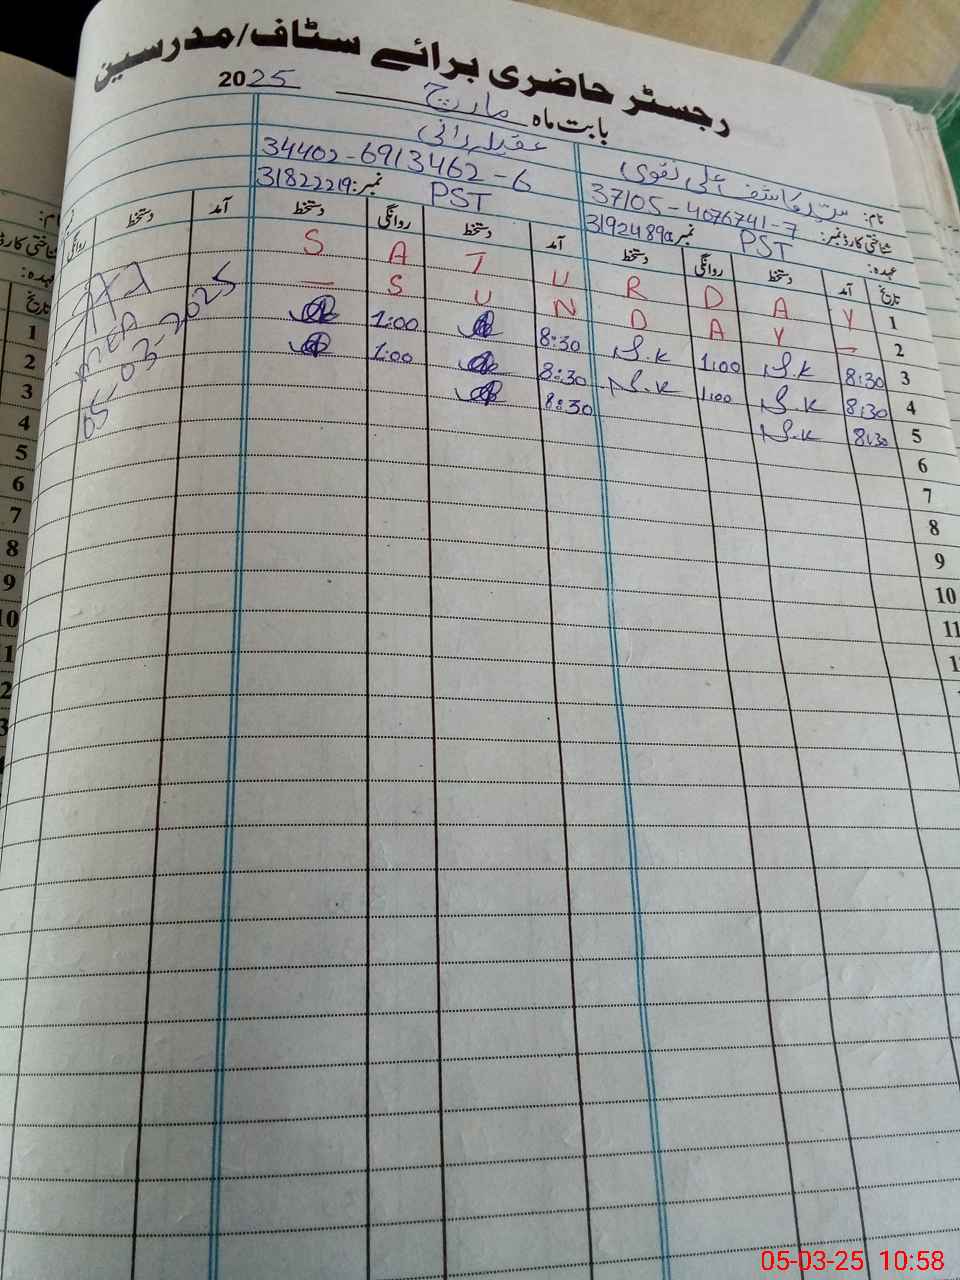 رجسٹر حاضری برائے سٹاف/مدرسین
بابت ماہ مارچ 2025
نام: سید کاشف علی نقوی عقیلہ رانی
شناختی کارڈ نمبر: 37105-4076741-7 34402-6913462-6
عہدہ: PST نمبر 3192489 PST نمبر: 31822219
تاریخ آمد دستخط روانگی دستخط آمد دستخط روانگی دستخط آمد دستخط روانگی
1 S A T U R D A Y
2 — S U N D A Y —
3 8:30 S.K 1:00 S.K 8:30 1:00
4 8:30 S.K 1:00 S.K 8:30 1:00
5 8:30 S.K 8:30
6
7
8
9
10
11
MEA
05-03-2025
نام:
شناختی کارڈ
عہدہ:
تاریخ
1
2
3
4
5
6
7
8
9
10
05-03-25 10:58